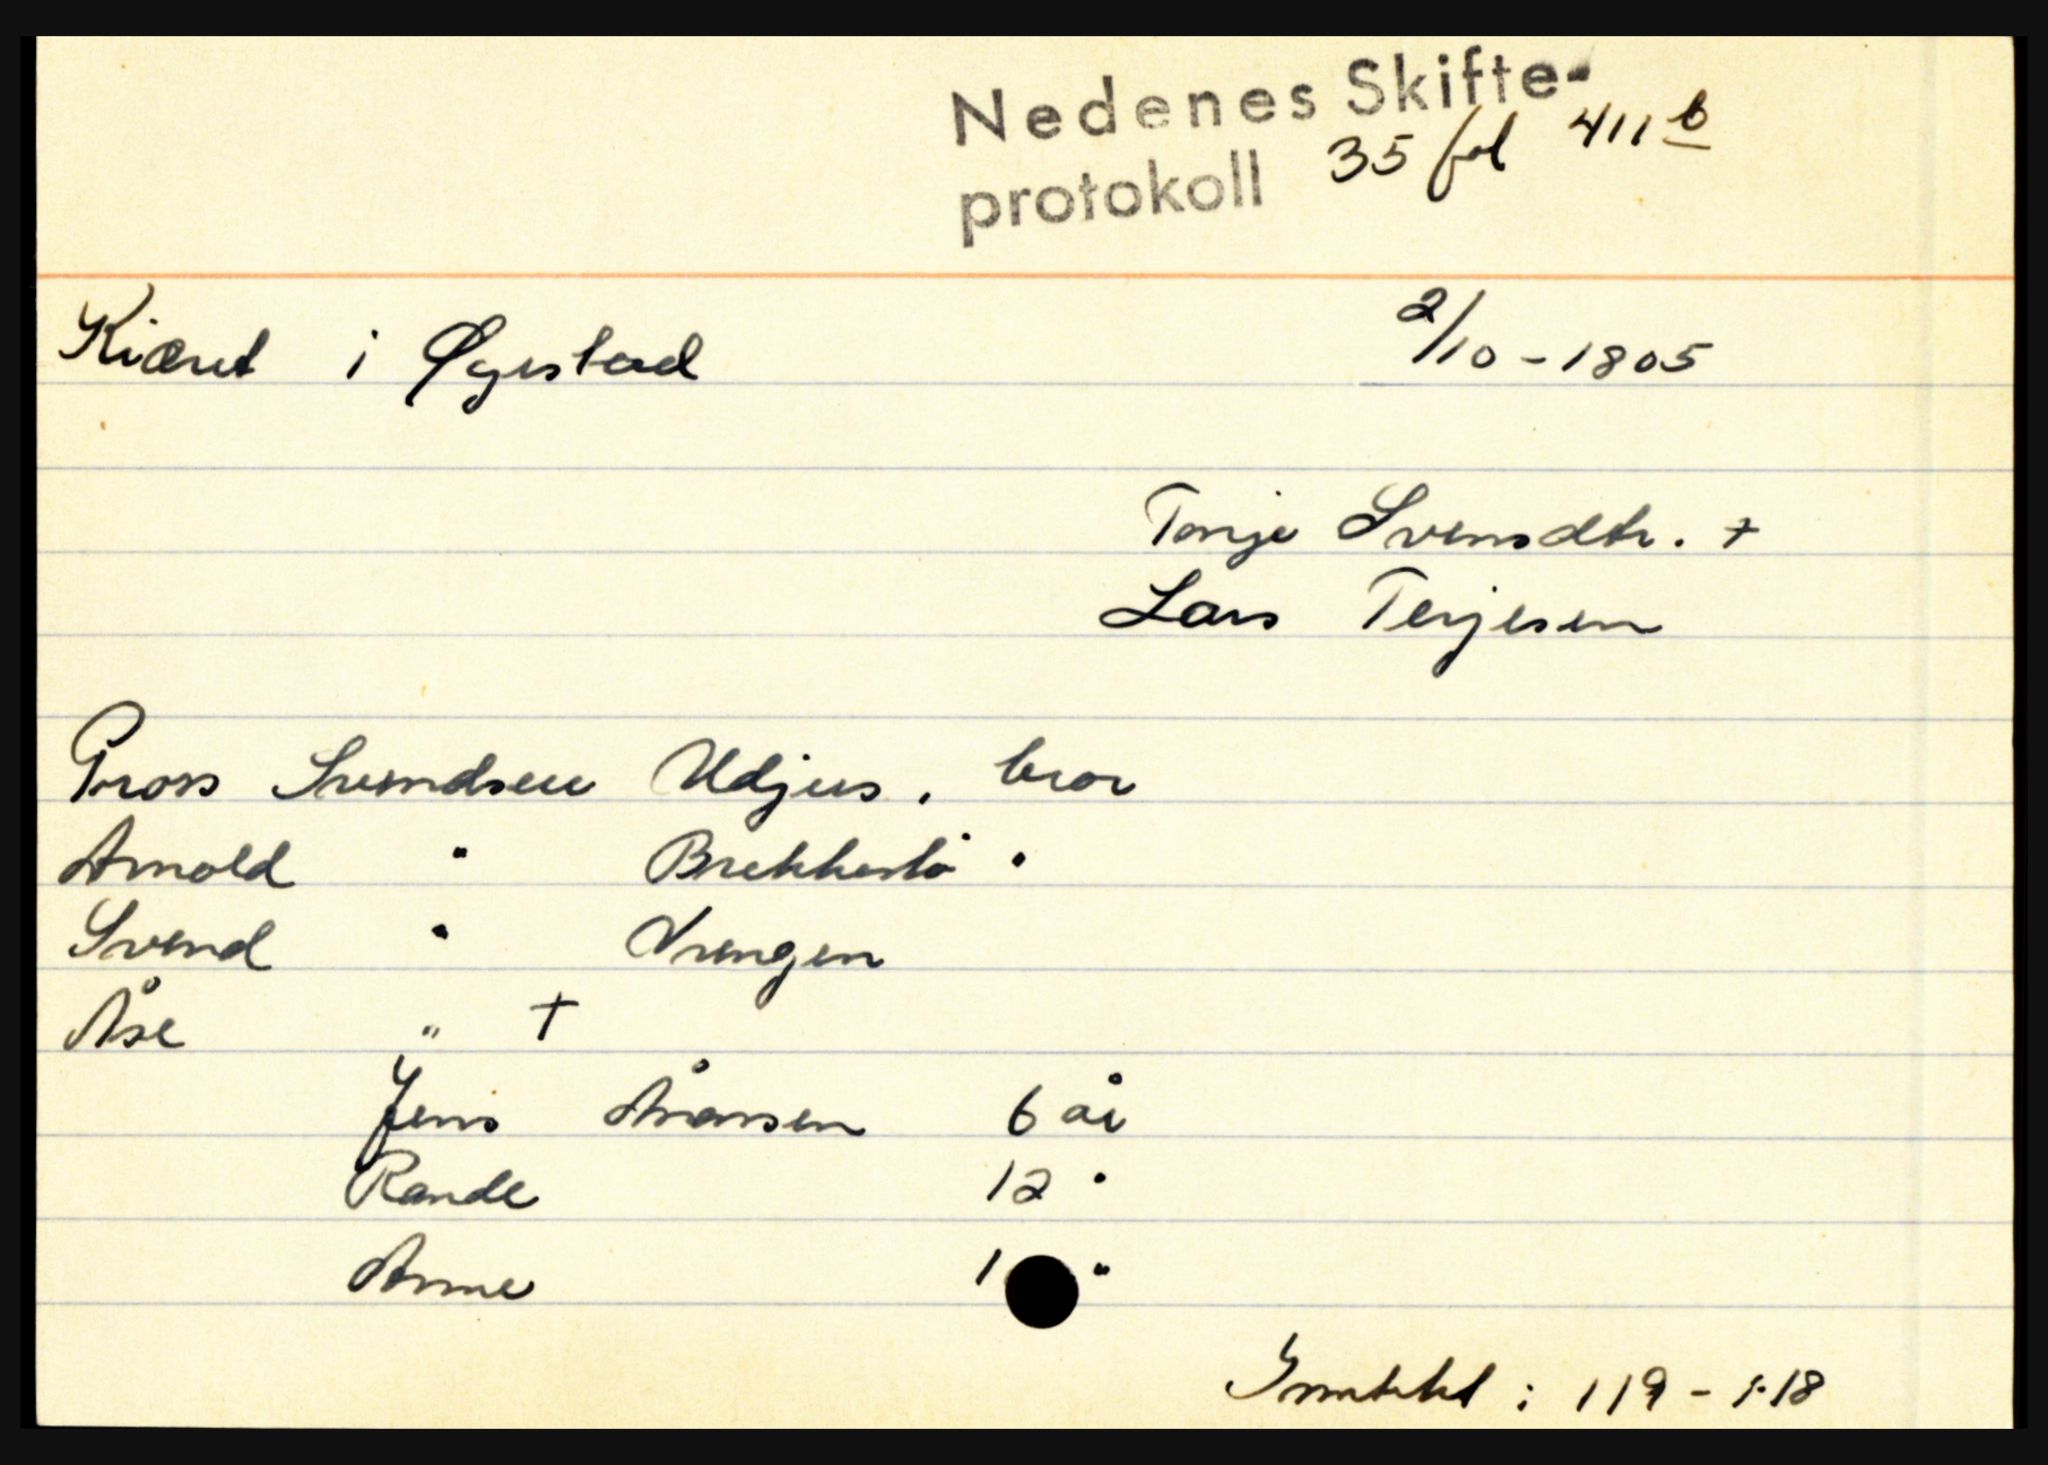 Nedenes Skifte-
protokoll 35 fol 411 b
Kiæret i Øyestad 2/10 - 1805
Tonje Svensdtr. +
Lars Terjesen
Gross Svendsen Udjus, bror
Arnold " Brekkestø "
Svend " Vrengen
Åse " †
Jens Åvansen 6 år
Rande 12 "
Anne 1 "
Inntekt : 119 - 1-18